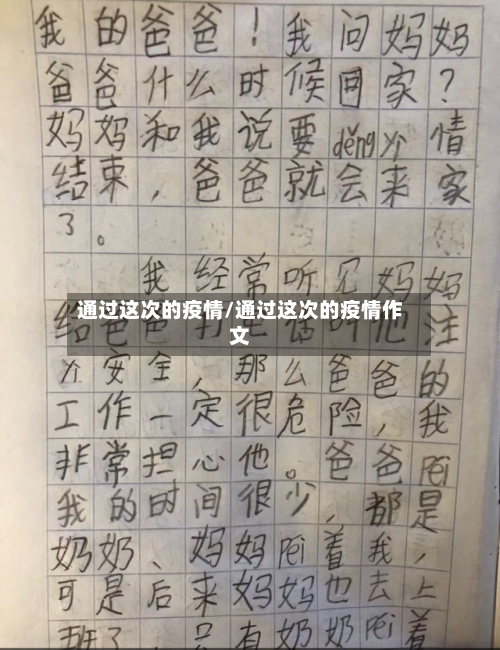 我的爸爸！我问妈妈
爸爸什么时候回家？
妈妈和我说要děngyì情
结束，爸爸就会来家
了。
我经常听见妈妈
通过这次的疫情/通过这次的疫情作
文
给爸爸打电话叫他注
yì安全，那么爸爸的
工作一定很危险，我
非常担心他。爸爸péi
我的时间很少，都是
奶奶、妈妈péi着我，
可是后来妈妈也去上
班了，只有奶奶péi着